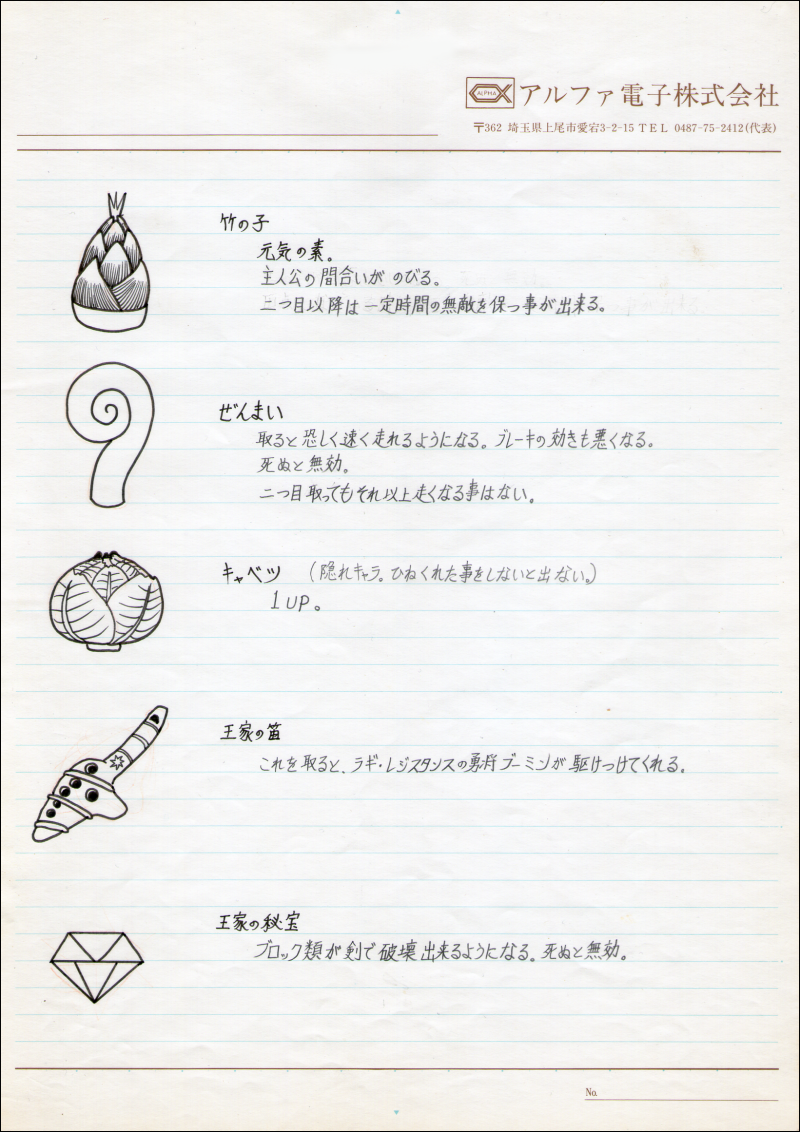 ALPHA
アルファ電子株式会社
〒362 埼玉県上尾市愛宕3-2-15 TEL 0487-75-2412(代表)
竹の子
元気の素。
主人公の間合いが のびる。
二つ目以降は一定時間の無敵を保つ事が出来る。
ぜんまい
取ると恐しく速く走れるようになる。ブレーキの効きも悪くなる。
死ぬと無効。
二つ目取ってもそれ以上走くなる事はない。
キャベツ (隠れキャラ。ひねくれた事をしないと出ない。)
1UP。
王家の笛
これを取ると、ラギ・レジスタンスの勇将ブーミンが駆けつけてくれる。
王家の秘宝
ブロック類が剣で破壊出来るようになる。死ぬと無効。
No.